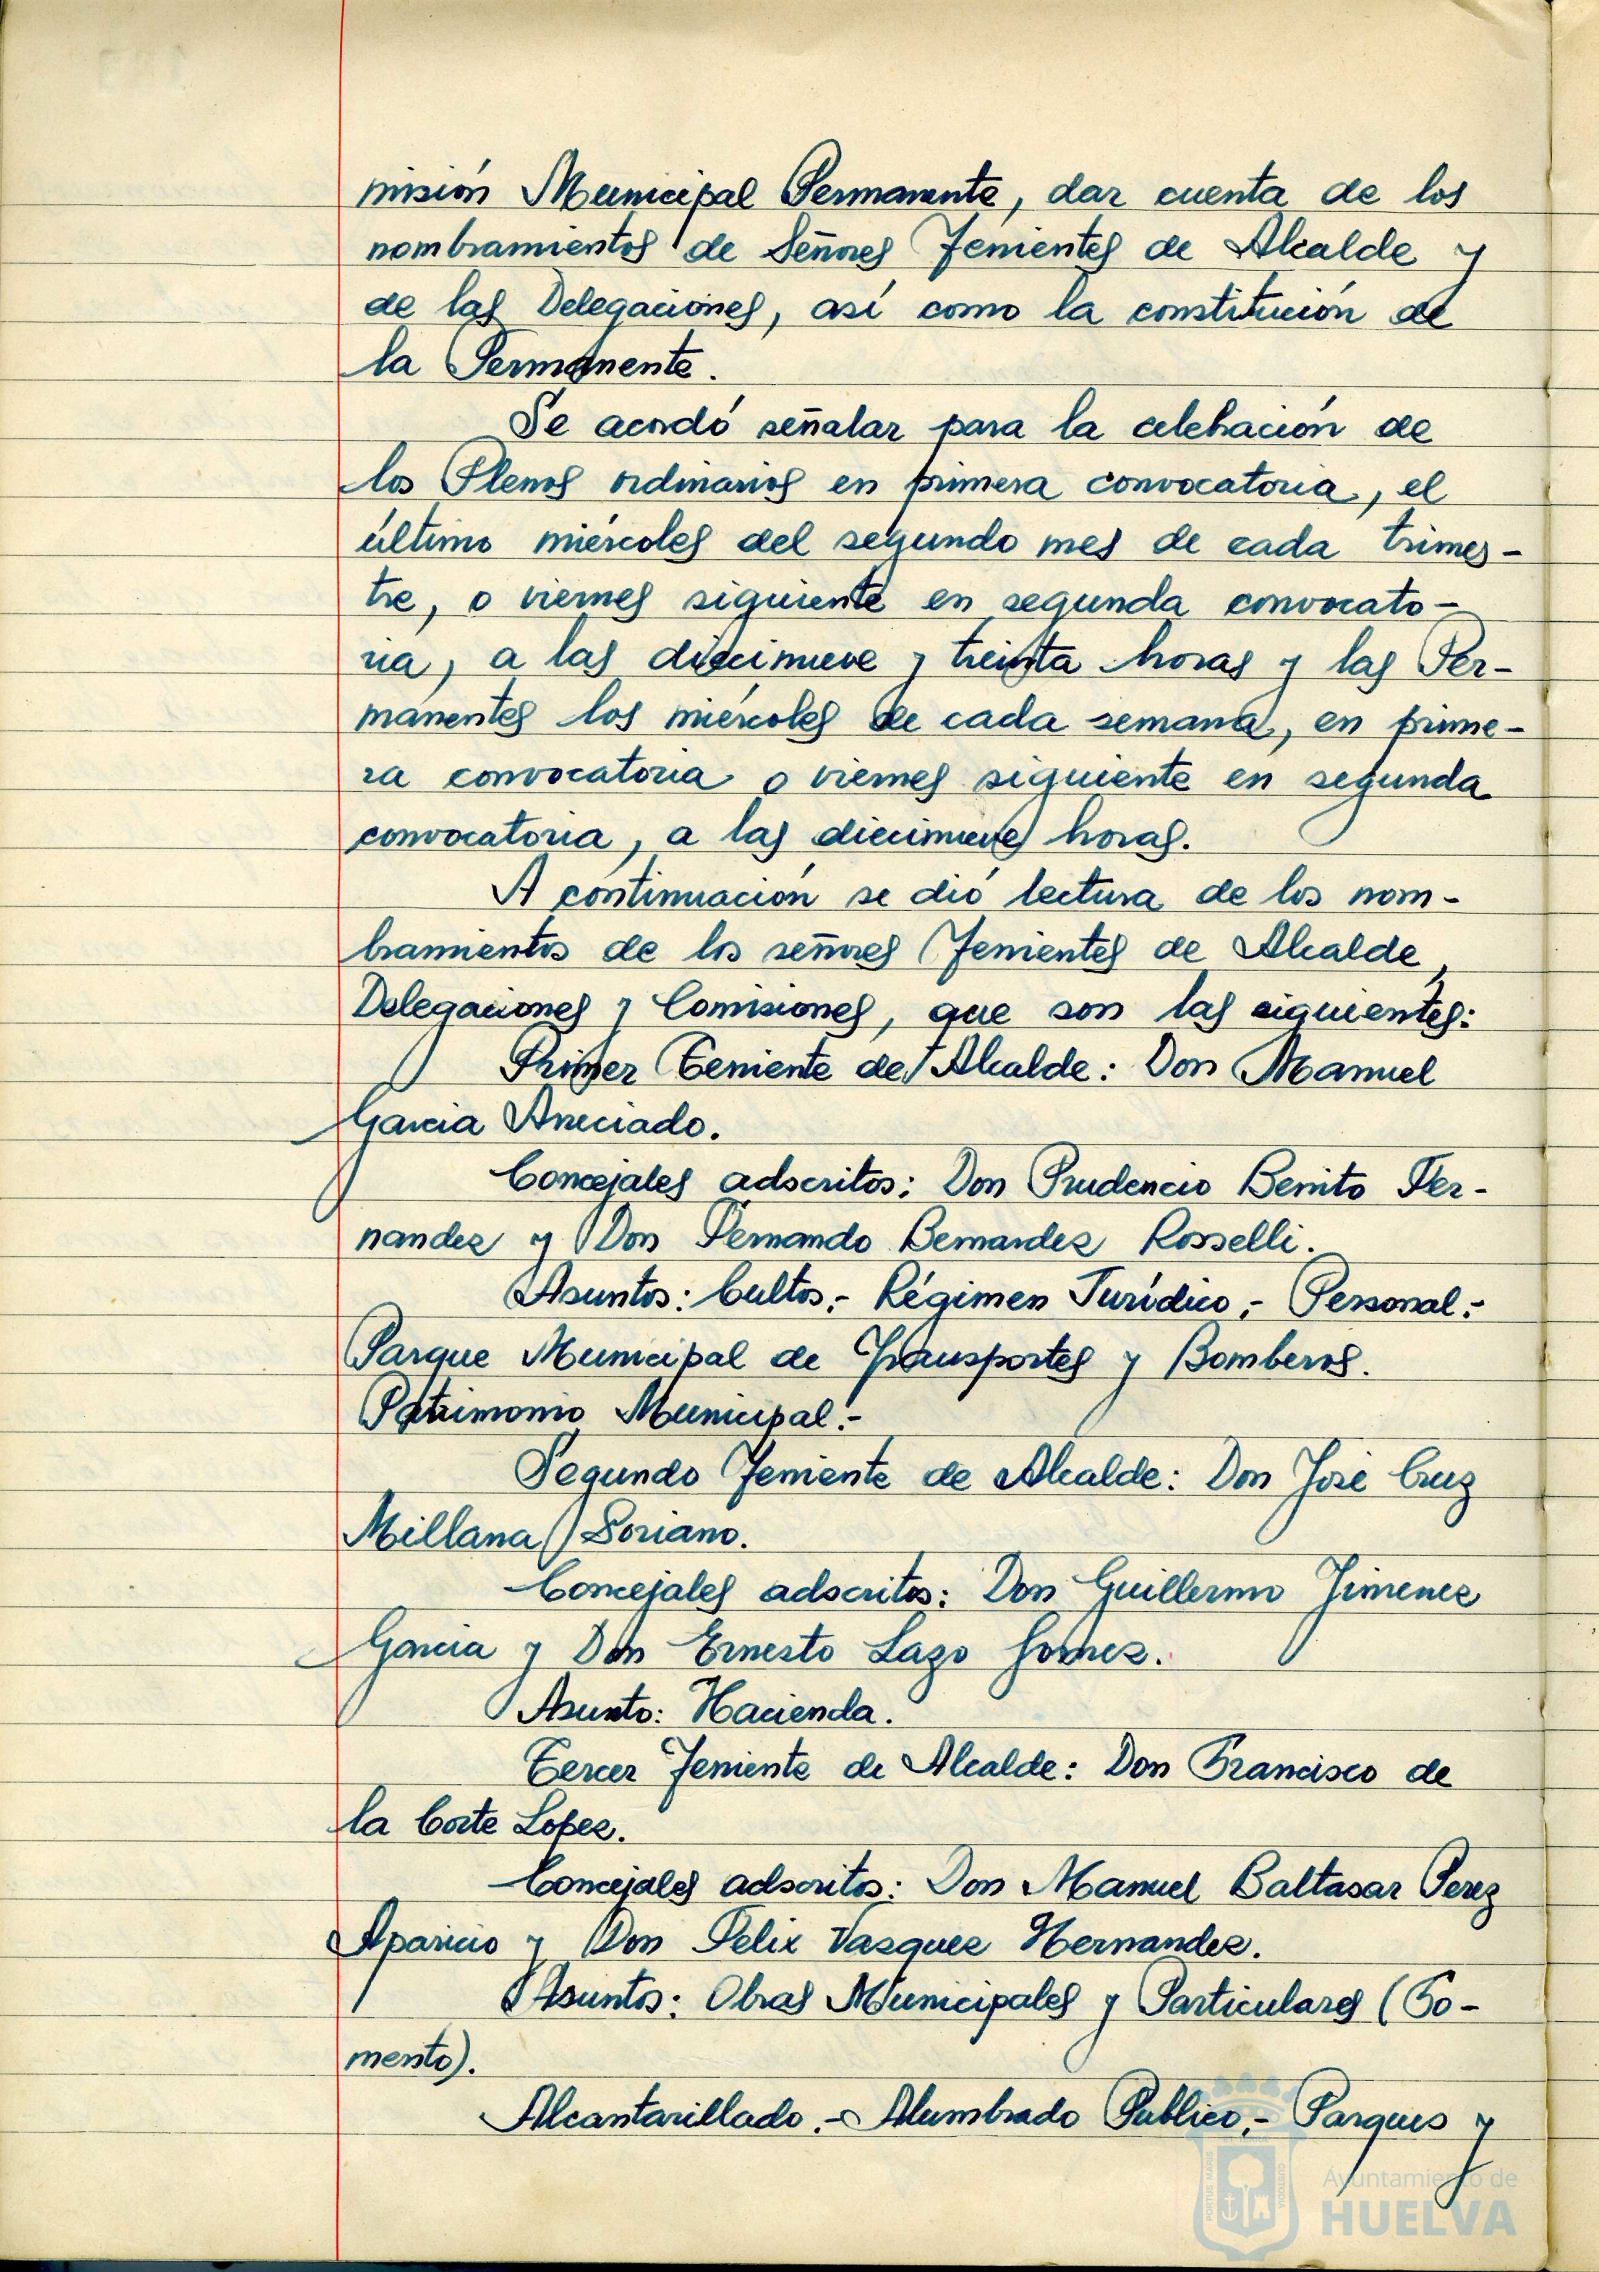 misión Municipal Permanente, dar cuenta de los
nombramientos de Señores Tenientes de Alcalde y
de las Delegaciones, así como la constitución de
la Permanente.
Se acordó señalar para la celebración de
los Plenos ordinarios en primera convocatoria, el
último miércoles del segundo mes de cada trimes-
tre, o viernes siguiente en segunda convocato-
ria, a las diecinueve y treinta horas y las Per-
manentes los miércoles de cada semana, en prime-
ra convocatoria o viernes siguiente en segunda
convocatoria, a las diecinueve horas.
A continuación se dió lectura de los nom-
bramientos de los señores Tenientes de Alcalde,
Delegaciones y Comisiones, que son las siguientes:
Primer Teniente de Alcalde: Don Manuel
Garcia Anreciado.
Concejales adscritos: Don Prudencio Benito Fer-
nandez y Don Fernando Bernardez Rosselli.
Asuntos: Cultos.- Régimen Jurídico.- Personal.-
Parque Municipal de Transportes y Bomberos.
Patrimonio Municipal.-
Segundo Teniente de Alcalde: Don José Cruz
Millana Soriano.
Concejales adscritos: Don Guillermo Jimenez
Garcia y Don Ernesto Lazo Gomez.
Asunto: Hacienda.
Tercer Teniente de Alcalde: Don Francisco de
la Corte Lopez.
Concejales adscritos: Don Manuel Baltasar Perez
Aparicio y Don Felix Vazquez Hernandez.
Asuntos: Obras Municipales y Particulares (Fo-
mento).
Alcantarillado.- Alumbrado Publico.- Parques y
Ayuntamiento de
HUELVA
PORTUS MARIS
CUSTODIA